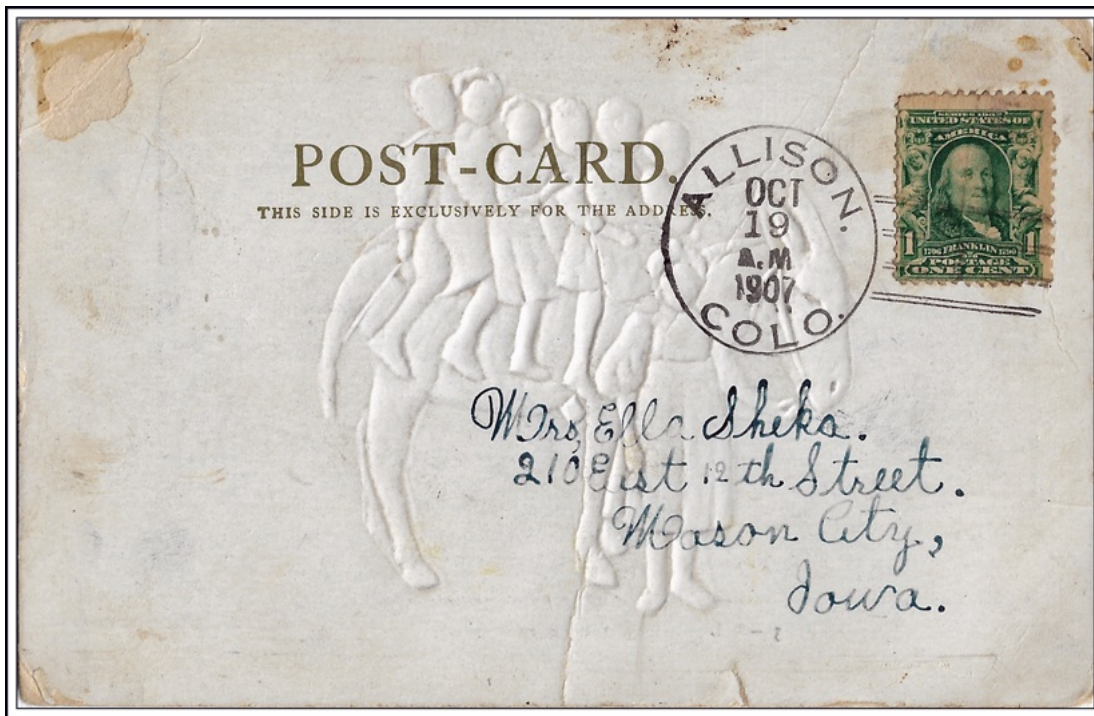 POST-CARD.
THIS SIDE IS EXCLUSIVELY FOR THE ADDRESS.
ALLISON.
OCT
19
A.M
1907
COLO.
SERIES 1902
UNITED STATES OF
AMERICA
1 1
1706 FRANKLIN 1790
POSTAGE
ONE CENT
Mrs, Ella Sheka.
210 East 12th Street.
Mason City,
Iowa.